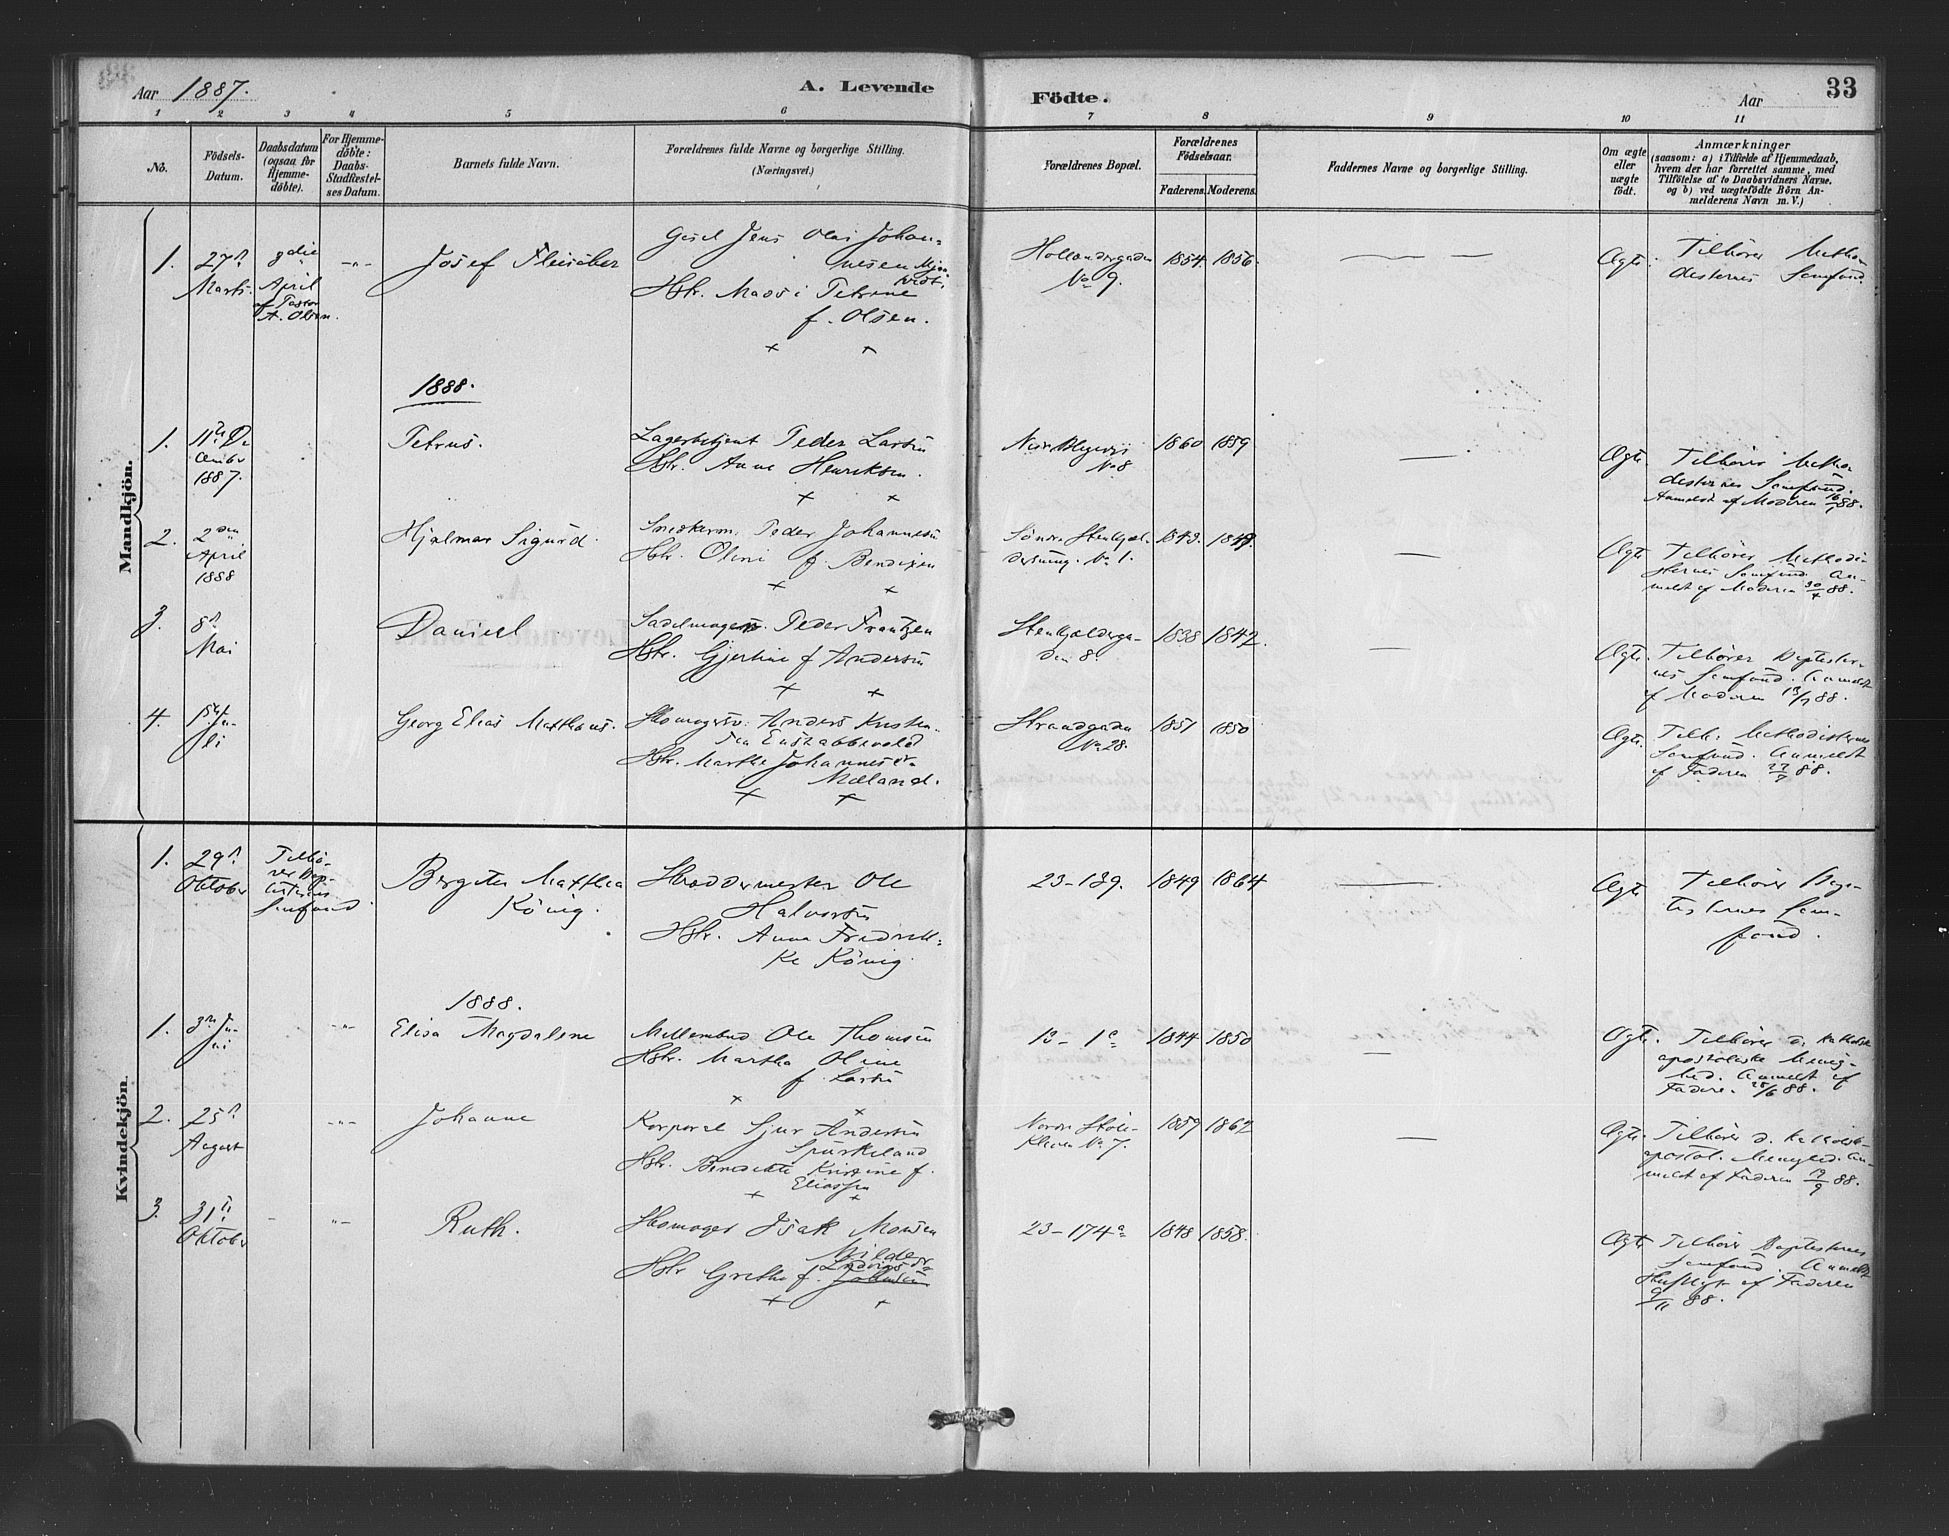 Aar 1887. A. Levende Födte. Aar 33
1 2 3 4 5 6 7 8 9 10 11
No.
Födsels-
Datum.
Daabsdatum
(ogsaa for
Hjemme-
døbte).
For Hjemme-
døbte:
Daabs-
Stadfæstel-
ses Datum.
Barnets fulde Navn.
Forældrenes fulde Navne og borgerlige Stilling.
(Næringsvei.)
Forældrenes Bopæl.
Forældrenes
Födselsaar.
Faderens. Moderens.
Faddernes Navne og borgerlige Stilling.
Om ægte
eller
uægte
födt.
Anmærkninger
(saasom: a) i Tilfælde af Hjemmedaab,
hvem der har forrettet samme, med
Tilföielse af to Daabsvidners Navne,
og b) ved uægtefödte Börn An-
melderens Navn m. V.)
Mandkjön.
1. 27de
Marts
9die
April
af Pastor
A. Olsen.
Josef Fleischer
Jens Olai Johan-
nesen
Hstr. Petrine
f. Olsen.
Hollændergaden
No 9.
1854. 1856.
Ægte.
Tilhører Metho-
desternes Samfund.
1888.
1. 11te De-
cember
1887.
Petrus.
Lagerbetjent Peder Larsen
Hstr. Anna Henriksen.
No 8
1860 1859
Ægte.
Tilhører Metho-
desternes Samfund.
Anmeldt af Moderen 88.
2. 2den
April
1888
Hjalmar Sigurd.
Snedkerm. Peder Johannesen
Hstr. Oline f. Bendixen
Søndre Stenkjæl-
dersmug. No 1.
1843. 1847.
Ægte.
Tilhører Methodi-
sternes Samfund. An-
meldt af Moderen 30/4 88.
3. 8de
Mai
Daniel
Sadelmagerm. Peder Frantzen
Hstr. Gjertine f. Andersen
Stenkjælderga-
den 8.
1838 1842.
Ægte.
Tilhører Baptister-
nes Samfund. Anmeldt
af Moderen 13/7 88.
4. 1ste
Ju-
li
Georg Elias Matthæus.
Skomagersv. Anders Kristen-
sen Enstabbevold
Hstr. Marthe Johannesdr.
Mæland.
Strandgaden
No 28.
1851 1850
Ægte.
Tilh. Methodisternes
Samfund. Anmeldt
af Faderen 27/7 88.
Kvindekjön.
1. 29de
Oktober
Tilhø-
rer Bap-
tisternes
Samfund.
Bergite Mathea
König.
Skræddermester Ole
Halvorsen
Hstr. Anna Fredrik-
ke König.
23-139. 1849 1864
Ægte
Tilhører Bap-
tisternes Sam-
fund.
1888.
1. 3die Ju-
ni
Elisa Magdalene
Mellembud Ole Thomsen
Hstr. Martha Oline
f. Larsen
1844 1850
Ægte.
Tilhører d. katholsk
apostoliske Menig-
hed. Anmeldt af
Faderen 25/6 88.
2. 25de
August
Johanne
Korporal Sjur Andersen
Spurkeland
Hstr. Benedikte Kristine f.
Eliassen
Nordre Støle-
kleven No 7.
1859 1862
Ægte.
Tilhører d. katholsk-
apostol. Menighed. An-
meldt af Faderen 13/9 88.
3. 31te
Oktober
Ruth.
Skomager Isak Monsen
Milde
Hstr Grethe f. Ludvigsdr.
Johnsen
23-174a 1848 1858.
Ægte
Tilhører Baptisternes
Samfund. Anmeldt
Skriftligt af Faderen
9/11 88.